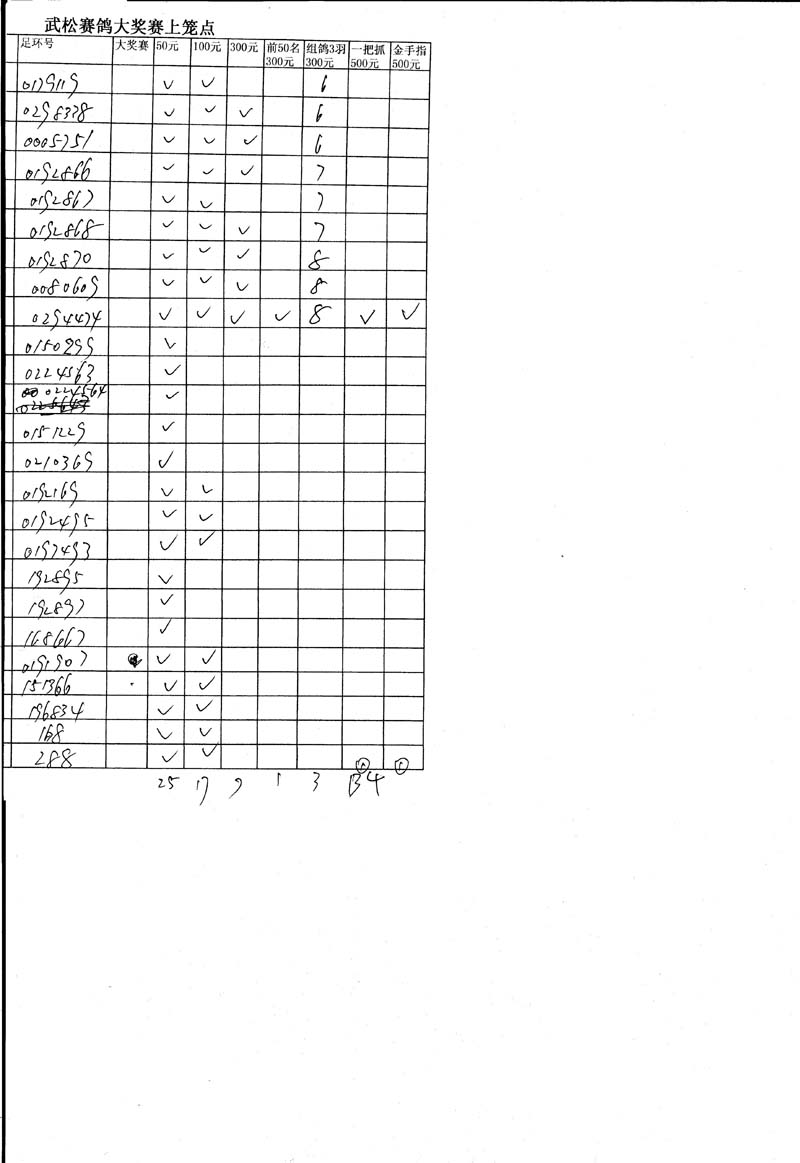 武松赛鸽大奖赛上笼点
足环号 大奖赛 50元 100元 300元 前50名300元 组鸽3羽300元 一把抓500元 金手指500元
0179119 ✓ ✓ 6
0298338 ✓ ✓ ✓ 6
0005751 ✓ ✓ ✓ 6
0192866 ✓ ✓ ✓ 7
0192867 ✓ ✓ 7
0192868 ✓ ✓ ✓ 7
0192870 ✓ ✓ ✓ 8
0080609 ✓ ✓ ✓ 8
0294474 ✓ ✓ ✓ ✓ 8 ✓ ✓
0150299 ✓
0224563 ✓
0224564 ✓
0151229 ✓
0210369 ✓
0192169 ✓ ✓
0192495 ✓ ✓
0197493 ✓ ✓
192895 ✓
192897 ✓
168667 ✓
0191907 ✓ ✓
151366 ✓ ✓
196834 ✓ ✓
168 ✓ ✓
288 ✓ ✓
25 17 7 1 3